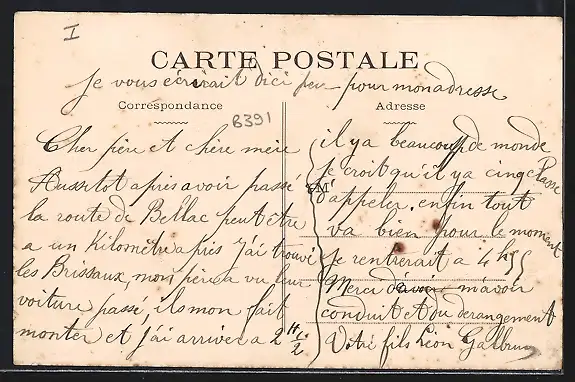 I
CARTE POSTALE
Je vous écrirait dici peu pour mon adresse
Correspondance
Adresse
B391
Cher père et chère mère
Aussetot apris avoir passé
la route de Bellac peut être
a un Kilomètre apris J'ai trouvé
les Brissaux, mon père a vu leur
voiture passé, ils mon fait
monter et j'ai arriver a 2 H 1/2
il y a beaucoup de monde
je croit qu'il y a cinq classe
M
d'appeler. enfin tout
va bien pour le moment
Je rentrerait a 4 h 55
Merci d'avoir m'avoir
conduit et du derangement
Votre fils Léon